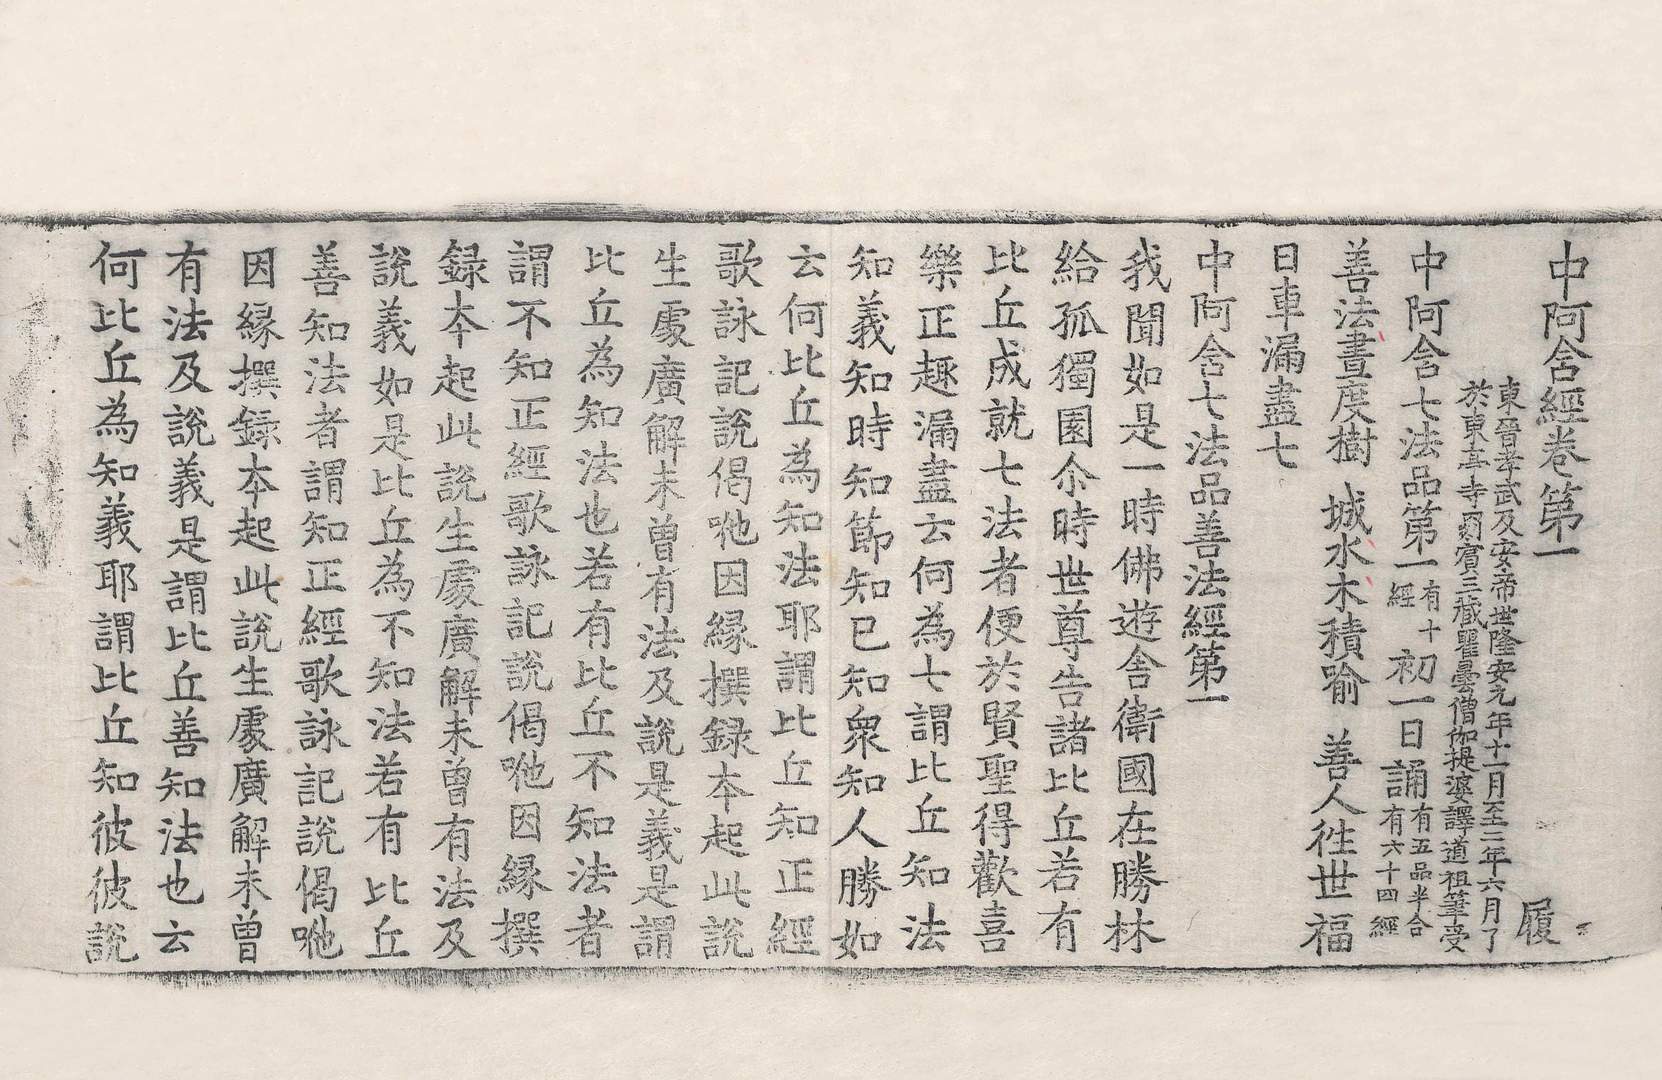 中阿含經卷第一　履
東晉孝武及安帝世隆安元年十一月至二年六月了
於東亭寺罽賓三藏瞿曇僧伽提婆譯道祖筆受
中阿含七法品第一有十經初一日誦有五品半合有六十四經
善法晝度樹　城水木積喻　善人徃世福
日車漏盡七
中阿含七法品善法經第一
我聞如是一時佛遊舍衛國在勝林
給孤獨園尒時世尊告諸比丘若有
比丘成就七法者便於賢聖得歡喜
樂正趣漏盡云何為七謂比丘知法
知義知時知節知己知衆知人勝如
云何比丘為知法耶謂比丘知正經
歌詠記說偈咃因緣撰録本起此說
生處廣解未曾有法及說是義是謂
比丘為知法也若有比丘不知法者
謂不知正經歌詠記說偈咃因緣撰
録本起此說生處廣解未曾有法及
說義如是比丘為不知法若有比丘
善知法者謂知正經歌詠記說偈咃
因緣撰録本起此說生處廣解未曾
有法及說義是謂比丘善知法也云
何比丘為知義耶謂比丘知彼彼說